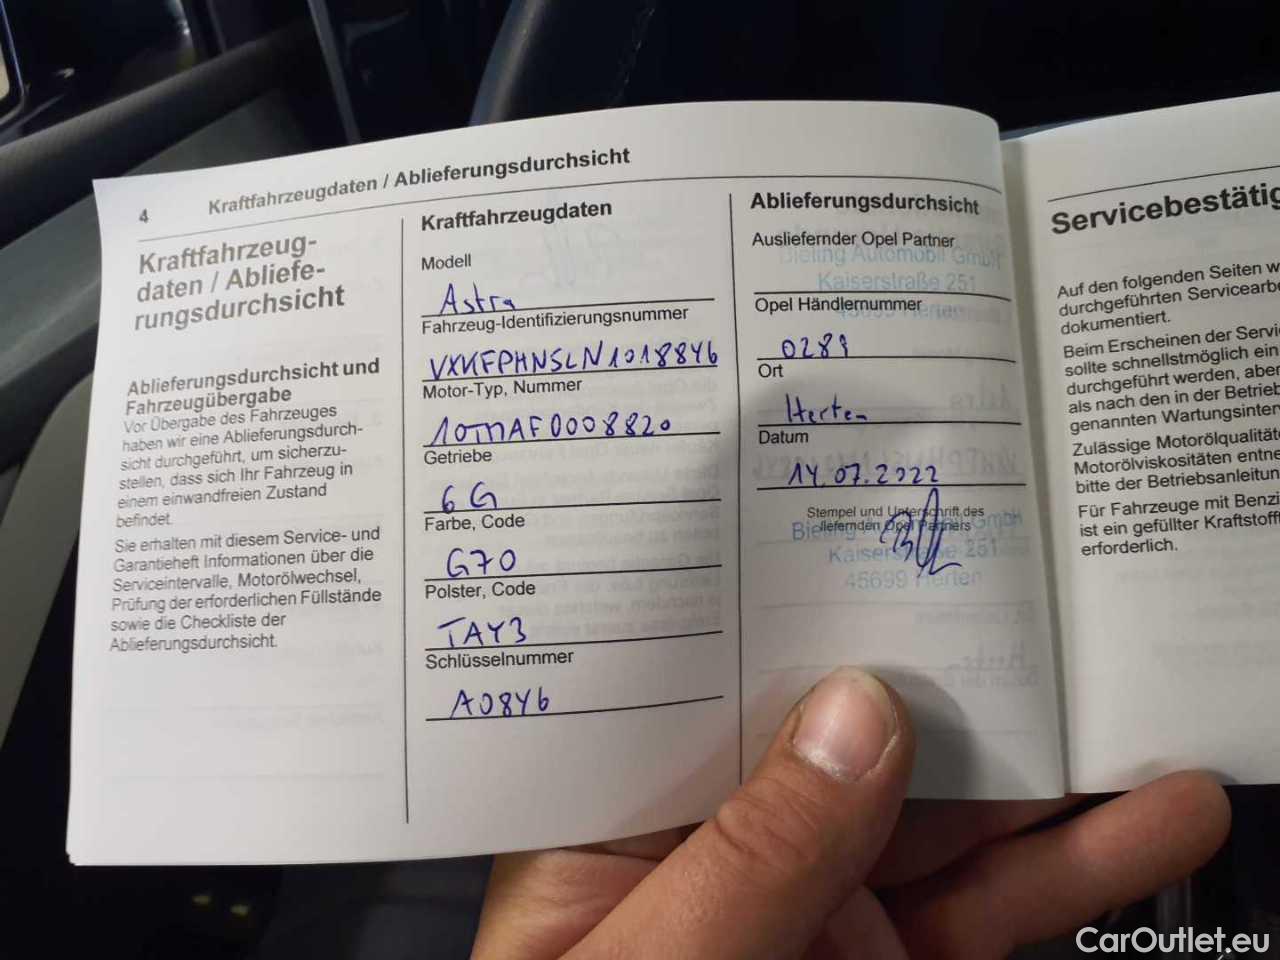 4
Kraftfahrzeugdaten / Ablieferungsdurchsicht
Kraftfahrzeug-
daten / Abliefe-
rungsdurchsicht
Ablieferungsdurchsicht und
Fahrzeugübergabe
Vor Übergabe des Fahrzeuges
haben wir eine Ablieferungsdurch-
sicht durchgeführt, um sicherzu-
stellen, dass sich Ihr Fahrzeug in
einem einwandfreien Zustand
befindet.
Sie erhalten mit diesem Service- und
Garantieheft Informationen über die
Serviceintervalle, Motorölwechsel,
Prüfung der erforderlichen Füllstände
sowie die Checkliste der
Ablieferungsdurchsicht.
Kraftfahrzeugdaten
Modell
Astra
Fahrzeug-Identifizierungsnummer
VXKFPHNSLN1018846
Motor-Typ, Nummer
10MAF0008820
Getriebe
6G
Farbe, Code
G70
Polster, Code
TAY3
Schlüsselnummer
A0846
Ablieferungsdurchsicht
Ausliefernder Opel Partner
Bieling Automobil GmbH
Kaiserstraße 251
45699 Herten
Opel Händlernummer
0289
Ort
Herten
Datum
14.07.2022
Stempel und Unterschrift des
liefernden Opel Partners
Bieling GmbH
Kaiserstraße 251
45699 Herten
Servicebestätig
Auf den folgenden Seiten w
durchgeführten Servicearbe
dokumentiert.
Beim Erscheinen der Servi
sollte schnellstmöglich ein
durchgeführt werden, aber
als nach den in der Betrieb
genannten Wartungsinter
Zulässige Motorölqualität
Motorölviskositäten entne
bitte der Betriebsanleitun
Für Fahrzeuge mit Benzi
ist ein gefüllter Kraftstoff
erforderlich.
CarOutlet.eu